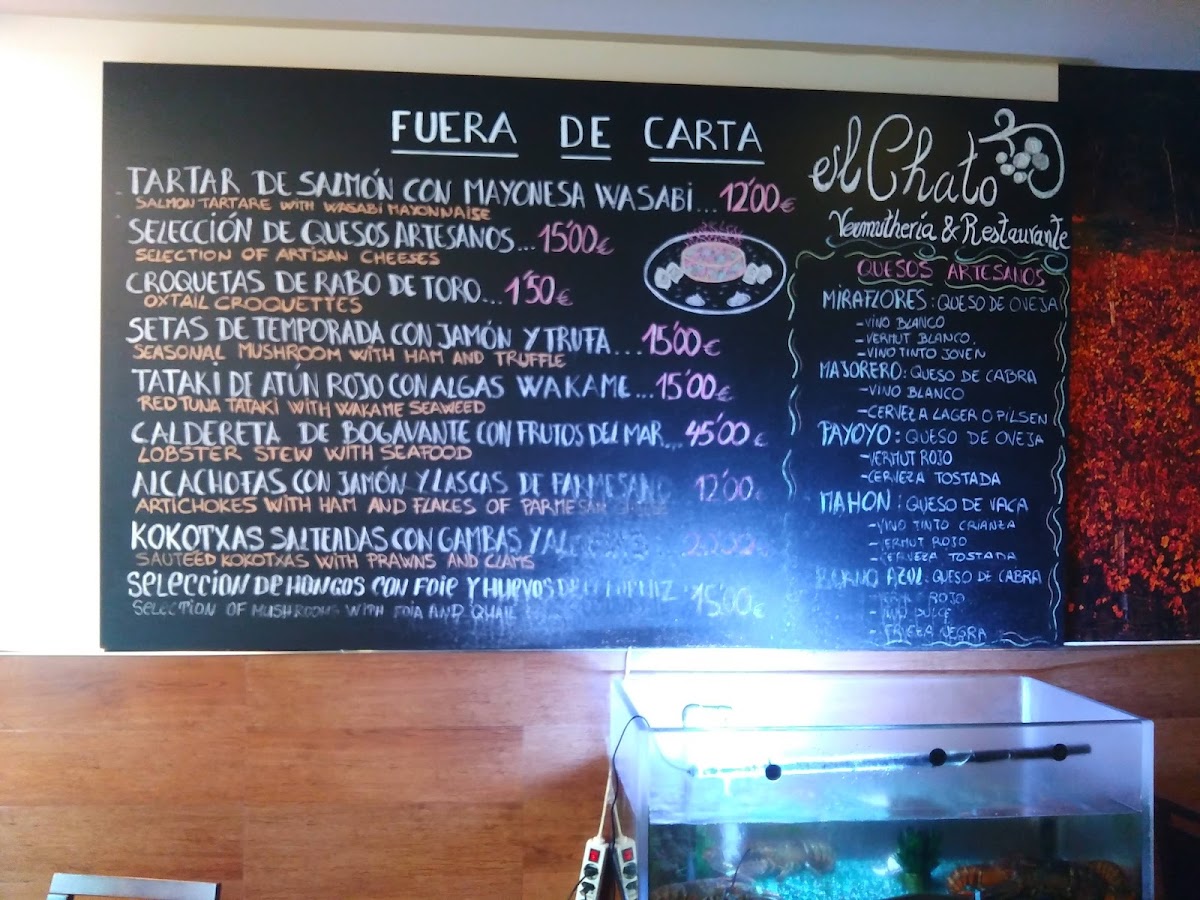 FUERA DE CARTA
TARTAR DE SALMÓN CON MAYONESA WASABI... 12'00€
SALMON TARTARE WITH WASABI MAYONNAISE
SELECCIÓN DE QUESOS ARTESANOS... 15'00€
SELECTION OF ARTISAN CHEESES
CROQUETAS DE RABO DE TORO... 1'50€
OXTAIL CROQUETTES
SETAS DE TEMPORADA CON JAMÓN Y TRUFA.... 15'00€
SEASONAL MUSHROOM WITH HAM AND TRUFFLE
TATAKI DE ATÚN ROJO CON ALGAS WAKAME... 15'00€
RED TUNA TATAKI WITH WAKAME SEAWEED
CALDERETA DE BOGAVANTE CON FRUTOS DEL MAR... 45'00€
LOBSTER STEW WITH SEAFOOD
ALCACHOFAS CON JAMÓN Y LASCAS DE PARMESANO 12'00€
ARTICHOKES WITH HAM AND FLAKES OF PARMESAN
KOKOTXAS SALTEADAS CON GAMBAS Y
SAUTEED KOKOTXAS WITH PRAWNS AND CLAMS
SELECCION DE HONGOS CON FOIE Y HUEVOS DE 15'00€
SELECTION OF MUSHROOMS WITH FOIA AND QUAIL
el Chato
Vermuthería & Restaurante
QUESOS ARTESANOS
MIRAFLORES: QUESO DE OVEJA
-VINO BLANCO
-VERMUT BLANCO.
-VINO TINTO JOVEN
MAJORERO: QUESO DE CABRA
-VINO BLANCO
-CERVEZA LAGER O PILSEN
PAYOYO: QUESO DE OVEJA
-VERMUT ROJO
-CERVEZA TOSTADA
MAHON: QUESO DE VACA
-VINO TINTO CRIANZA
-VERMUT ROJO
-CERVEZA TOSTADA
AZUL: QUESO DE CABRA
ROJO
-VINO DULCE
NEGRA